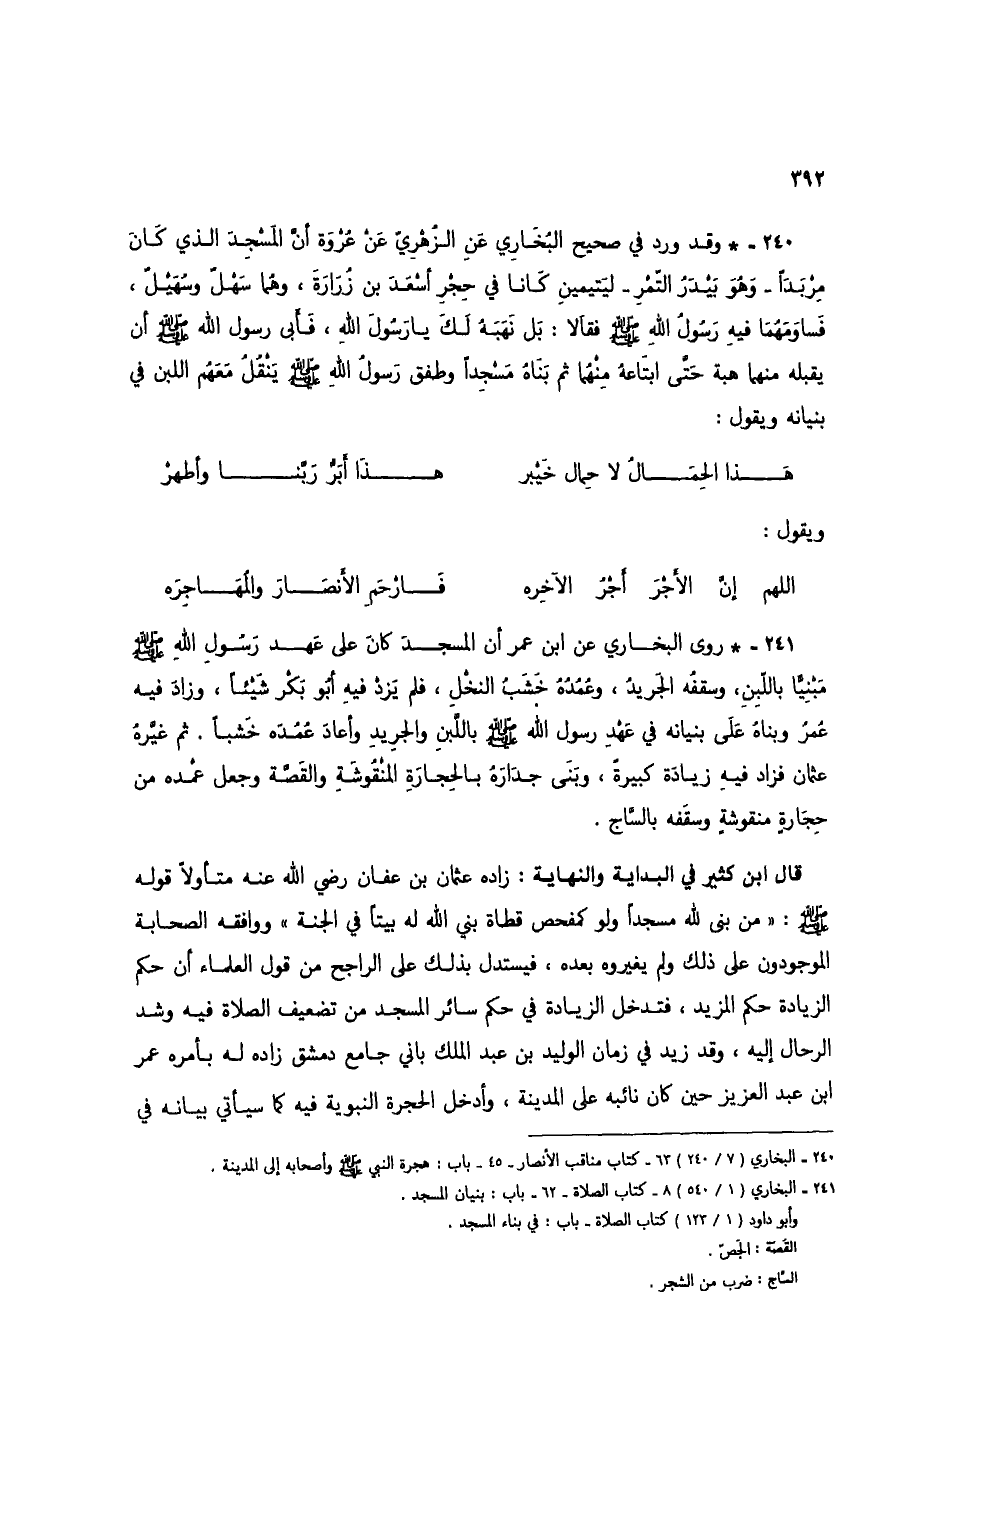 ٣٩٢
٢٤٠ - * وقد ورد في صحيح البُخَاري عَنِ الزُهْريّ عَنْ عُرْوَة أنَّ المَسْجِدَ الذي كَانَ
مِرْبَدَاً - وَهُوَ بَيْدَرُ التّمْرِ - ليَتيمينِ كَانا في حِجْرِ أسْعَدَ بن زُرَارَةَ ، وهُما سَهْلٌ وسُهَيْلٌ ،
فَساوَمَهُمَا فيهِ رَسُولُ اللهِ ﷺ فقاَلا : بَل نَهَبَهُ لَكَ يارَسُولَ اللهِ ، فَأبى رسول الله ﷺ أن
يقبله منهما هبة حَتَّى ابتَاعهُ مِنْهُما ثم بَنَاهُ مَسْجداً وطفق رَسولُ اللهِ ﷺ يَنْقُلُ مَعَهُم اللبن في
بنيانه ويقول :
هَذا الحِمَالُ لا حِمال خَيْبر هذَا أَبَرُّ رَبَّنا وأطهرْ
ويقول :
اللهم إنَّ الأَجْرَ أَجْرُ الآخِره فَارْحَمِ الأَنصَارَ والمُهَاجِرَه
٢٤١ - * روى البخاري عن ابن عمر أن المسجدَ كانَ على عَهد رَسُولِ اللهِ ﷺ
مَبْنِيًّا باللّبِنِ، وسقفُه الجَريدُ ، وعُمُدُهُ خَشَبُ النخْلِ ، فلم يَزدْ فيهِ أبُو بَكْر شَيْئاً ، وزادَ فيه
عُمرُ وبناهُ عَلَى بنيانه في عَهْدِ رسول الله ﷺ باللَّبنِ والجريدِ وأعادَ عُمُدَه خَشباً . ثم غيَّرهُ
عثمان فزاد فيه زيادَة كبيرةً ، وبَنَى جدَارَهُ بالحِجارَةِ المنْقُوشَةِ والقَصَّة وجعل عمْده من
حِجَارةٍ منقوشةٍ وسقَفه بالسَّاج .
قال ابن كثير في البداية والنهاية : زاده عثمان بن عفان رضي الله عنه متأولاً قوله
ﷺ : « من بنى لله مسجداً ولو كمفحص قطاة بني الله له بيتاً في الجنة » ووافقه الصحابة
الموجودون على ذلك ولم يغيروه بعده ، فيستدل بذلك على الراجح من قول العلماء أن حكم
الزيادة حكم المزيد ، فتدخل الزيادة في حكم سائر المسجد من تضعيف الصلاة فيه وشد
الرحال إليه ، وقد زيد في زمان الوليد بن عبد الملك باني جامع دمشق زاده له بأمره عمر
ابن عبد العزيز حين كان نائبه على المدينة ، وأدخل الحجرة النبوية فيه كما سيأتي بيانه في
٢٤٠ - البخاري ( ٧ / ٢٤٠ ) ٦٣ - كتاب مناقب الأنصار - ٤٥ - باب : هجرة النبي ﷺ وأصحابه إلى المدينة .
٢٤١ - البخاري ( ١ / ٥٤٠ ) ٨ - كتاب الصلاة - ٦٢ - باب : بنيان المسجد .
وأبو داود ( ١ / ١٢٣ ) كتاب الصلاة - باب : في بناء المسجد .
القَصّة : الجَصّ .
السَّاج : ضرب من الشجر .